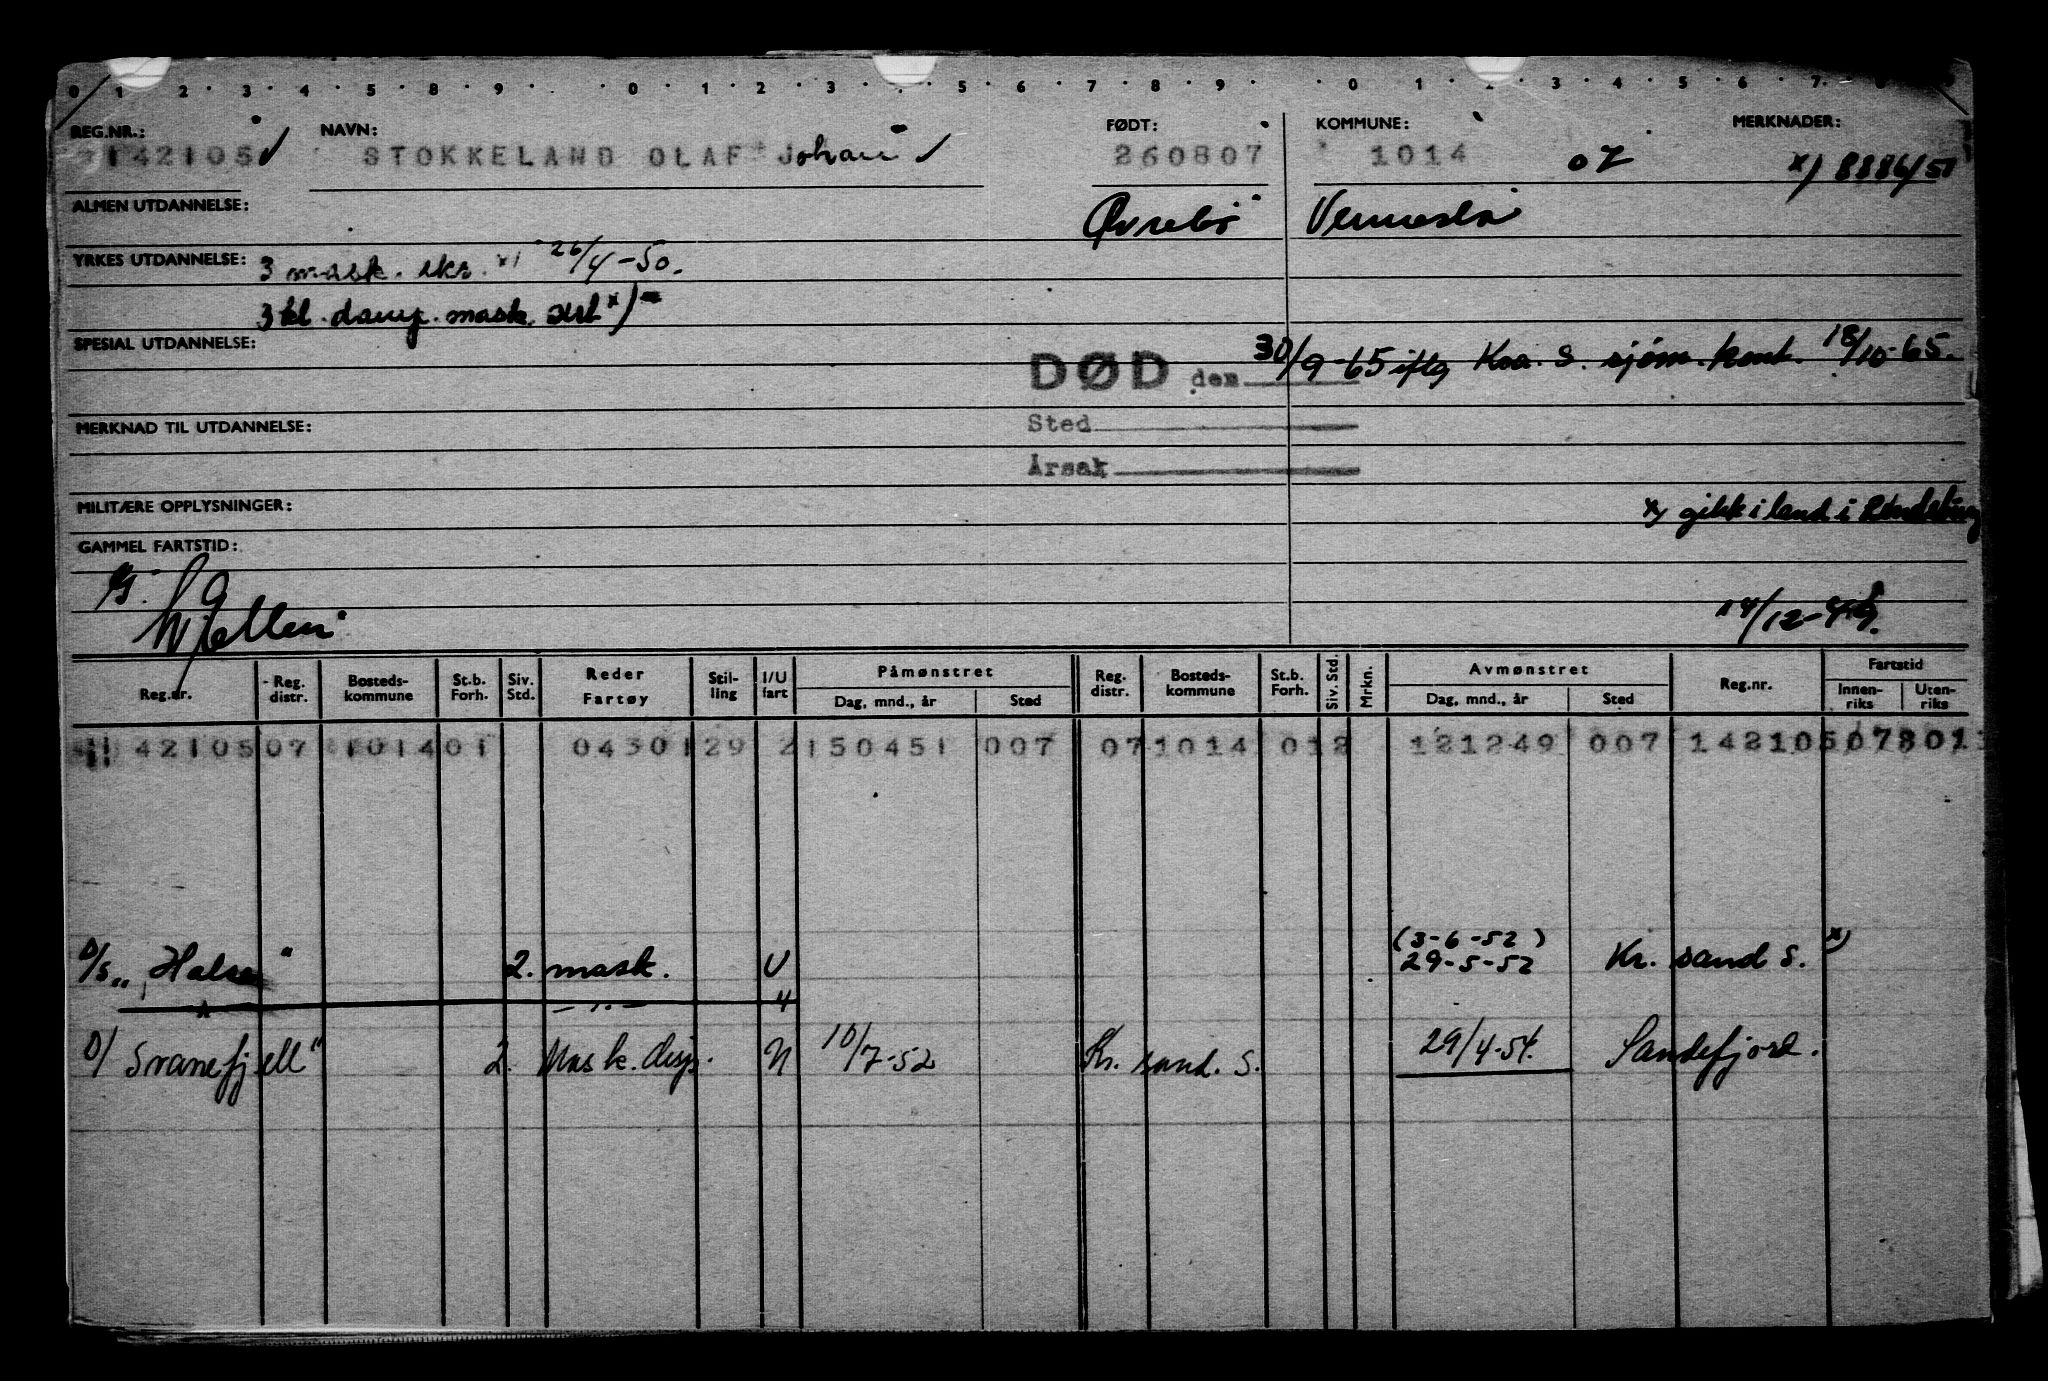 0 1 2 3 4 5 8 9 0 1 2 3 5 6 7 8 9 0 1 2 3 4 5 6 7 8 9
REG.NR.: NAVN: FØDT: KOMMUNE: MERKNADER:
142105 STOKKELAND OLAF Johan 260807 1014 07 x) 8886/51
ALMEN UTDANNELSE: Øvrebö Vennesla
YRKES UTDANNELSE: 3 mask. skr. x) 26/4-50.
3 kl. damp. mask. sert x)
SPESIAL UTDANNELSE:
DØD den 30/9-65 iflg Kra. S. sjøm. kont. 18/10-65.
Sted
MERKNAD TIL UTDANNELSE:
Årsak
MILITÆRE OPPLYSNINGER: x) gikk i land i
GAMMEL FARTSTID:
14/12-49.
Reg.nr. Reg. distr. Bosteds-kommune St.b. Forh. Siv. Std. Reder Fartøy Stil-ling I/U fart Påmønstret Dag, mnd., år Sted Reg. distr. Bosteds-kommune St.b. Forh. Siv. Std. Mrkn. Avmønstret Dag, mnd., år Sted Reg.nr. Fartstid Innen-riks Uten-riks
42105 07 1014 01 04301 29 2 150451 007 07 1014 012 121249 007 142105 07 3011
(3-6-52)
D/S „Halse" 2. mask. U 29-5-52 Kr. sand S. x)
— " — 4
D/ Svanefjell" 2. Mask. disp. N 10/7-52 Kr. sand. S. 29/4-54. Sandefjord.